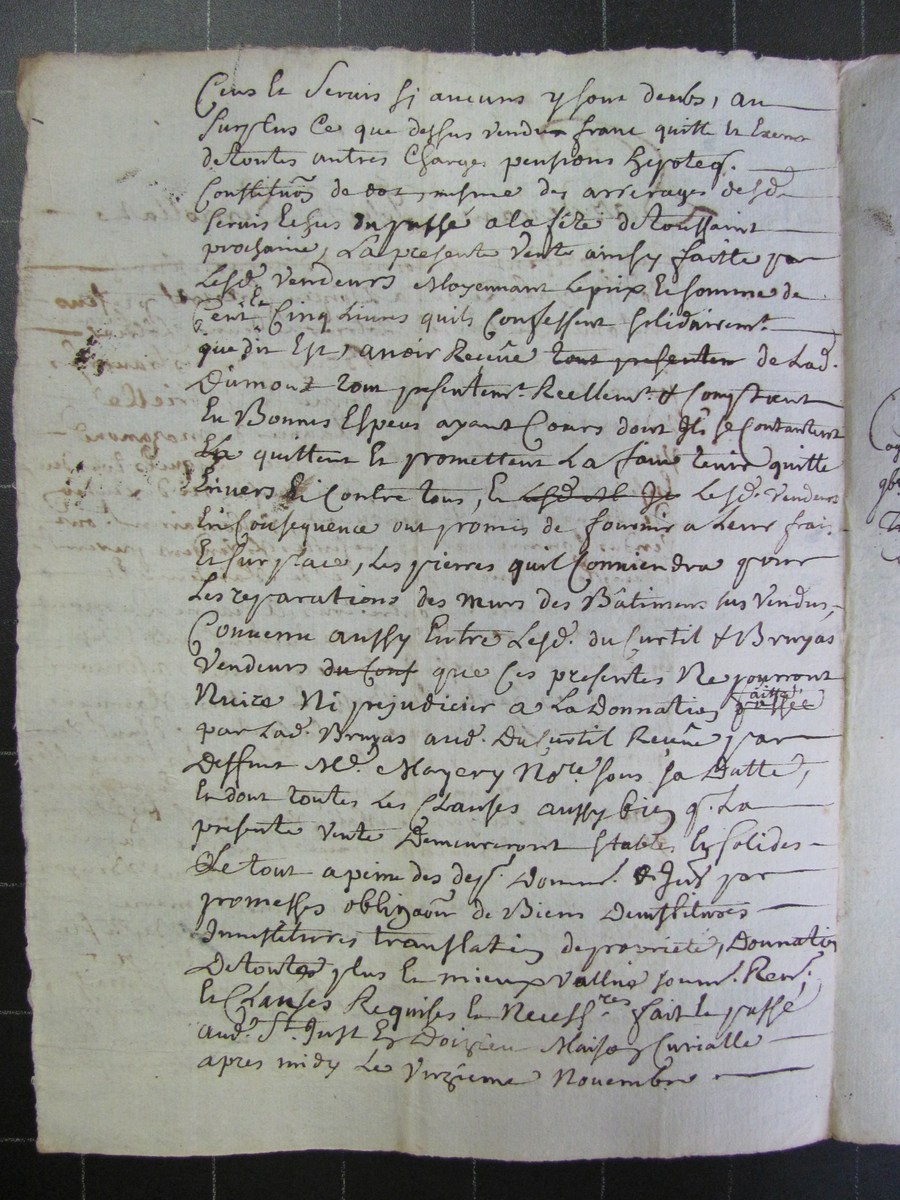 Cens et servis sy aucuns y sont deubs, au
surplus ce que dessus vendu franc quitte et exemt
de toutes autres charges pensions hipoteq.
constitu͠on de dot, mesme des arrerages desd.
servis et cens du passé a la fête de toussaint
prochaine, La presente vente ainsy faitte par
Lesd. vendeurs moyennant le prix et somme de
Cent Cinq Livres quils confessent solidairemt.
que dit est, avoir Receüe tout presentem de Lad.
Dumont tout presentemt. Reellemt. &
En Bonnes Especes ayant Cours dont ils se contantent
La quittent et promettent La faire tenir quitte
Envers et contre tous, et Lesd. vendeurs
En consequence ont promis de fournir a leur frai.
Et sur place, Les pierres quil conviendra pour
Les reparations des murs des Bâtimens sus vendus,
Convenu aussy Entre Lesd. du Curtil & Bruyas
vendeurs que ces presentes Ne pourront
Nuire Ni prejudicier a La Donnation passée faitte
par Lad. Bruyas aud. Du Curtil Receüe par
Deffunt Me. Mayery Nore. sous sa Datte,
Et dont toutes Les Clauses aussy bien q. La
presente vente Demeureront stables et solides
Le tout a peine des dep. Domm. & par
promesses obliga͠on de Biens Devestitures
Investitures translation de proprieté, Donnation
De toutes plus et mieux vallue soum. Ren.
Et Clauses Requises et Necess.res fait et passé
aud. St. Just En Doizieu Maison Curialle
apres midy Le Novembre